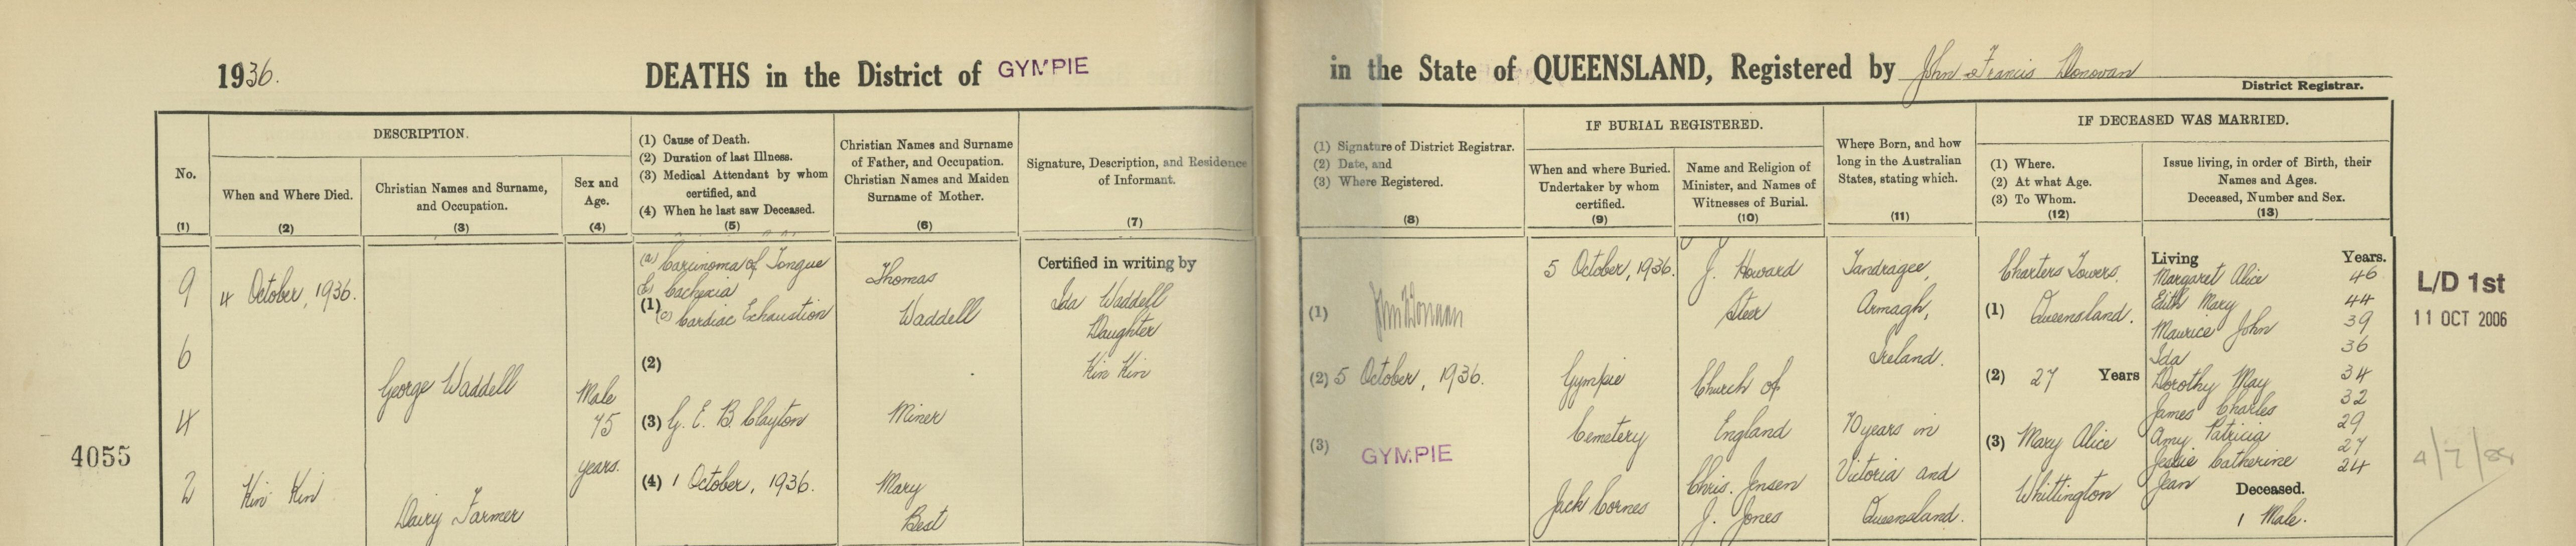 1936.
DEATHS in the District of GYMPIE
in the State of QUEENSLAND, Registered by John Francis Donovan
District Registrar.
No.
(1)
DESCRIPTION.
When and Where Died.
(2)
Christian Names and Surname,
and Occupation.
(3)
Sex and
Age.
(4)
(1) Cause of Death.
(2) Duration of last Illness.
(3) Medical Attendant by whom
certified, and
(4) When he last saw Deceased.
(5)
Christian Names and Surname
of Father, and Occupation.
Christian Names and Maiden
Surname of Mother.
(6)
Signature, Description, and Residence
of Informant.
(7)
(1) Signature of District Registrar.
(2) Date, and
(3) Where Registered.
(8)
IF BURIAL REGISTERED.
When and where Buried.
Undertaker by whom
certified.
(9)
Name and Religion of
Minister, and Names of
Witnesses of Burial.
(10)
Where Born, and how
long in the Australian
States, stating which.
(11)
IF DECEASED WAS MARRIED.
(1) Where.
(2) At what Age.
(3) To Whom.
(12)
Issue living, in order of Birth, their
Names and Ages.
Deceased, Number and Sex.
(13)
4055
9
6
4
2
4 October, 1936.
Kin Kin
George Waddell
Dairy Farmer
Male
75
years.
(1)
(a) Carcinoma of Tongue
(b) Cachexia
(c) Cardiac Exhaustion
(2)
(3) G. E. B. Clayton
(4) 1 October, 1936.
Thomas
Waddell
Miner
Mary
Best
Certified in writing by
Ida Waddell
Daughter
Kin Kin
(1) John Donovan
(2) 5 October, 1936.
(3) GYMPIE
5 October, 1936.
Gympie
Cemetery
Jack Cornes
J. Howard
Steer
Church of
England
Chris. Jensen
J. Jones
Tandragee,
Armagh,
Ireland.
70 years in
Victoria and
Queensland.
Charters Towers,
(1) Queensland.
(2) 27 Years
(3) Mary Alice
Whittington
Living Years.
Margaret Alice 46
Edith Mary 44
Maurice John 39
Ida 36
Dorothy May 34
James Charles 32
Amy Patricia 29
Jessie Catherine 27
Jean 24
Deceased.
1 Male.
L/D 1st
11 OCT 2006